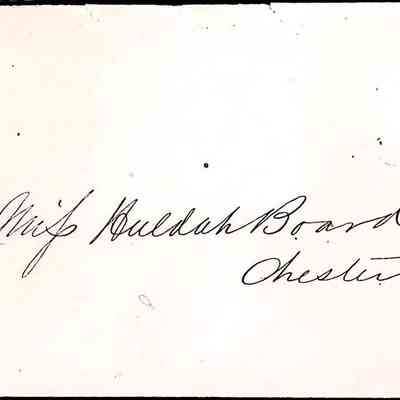 Miss Huldah Board
Chester